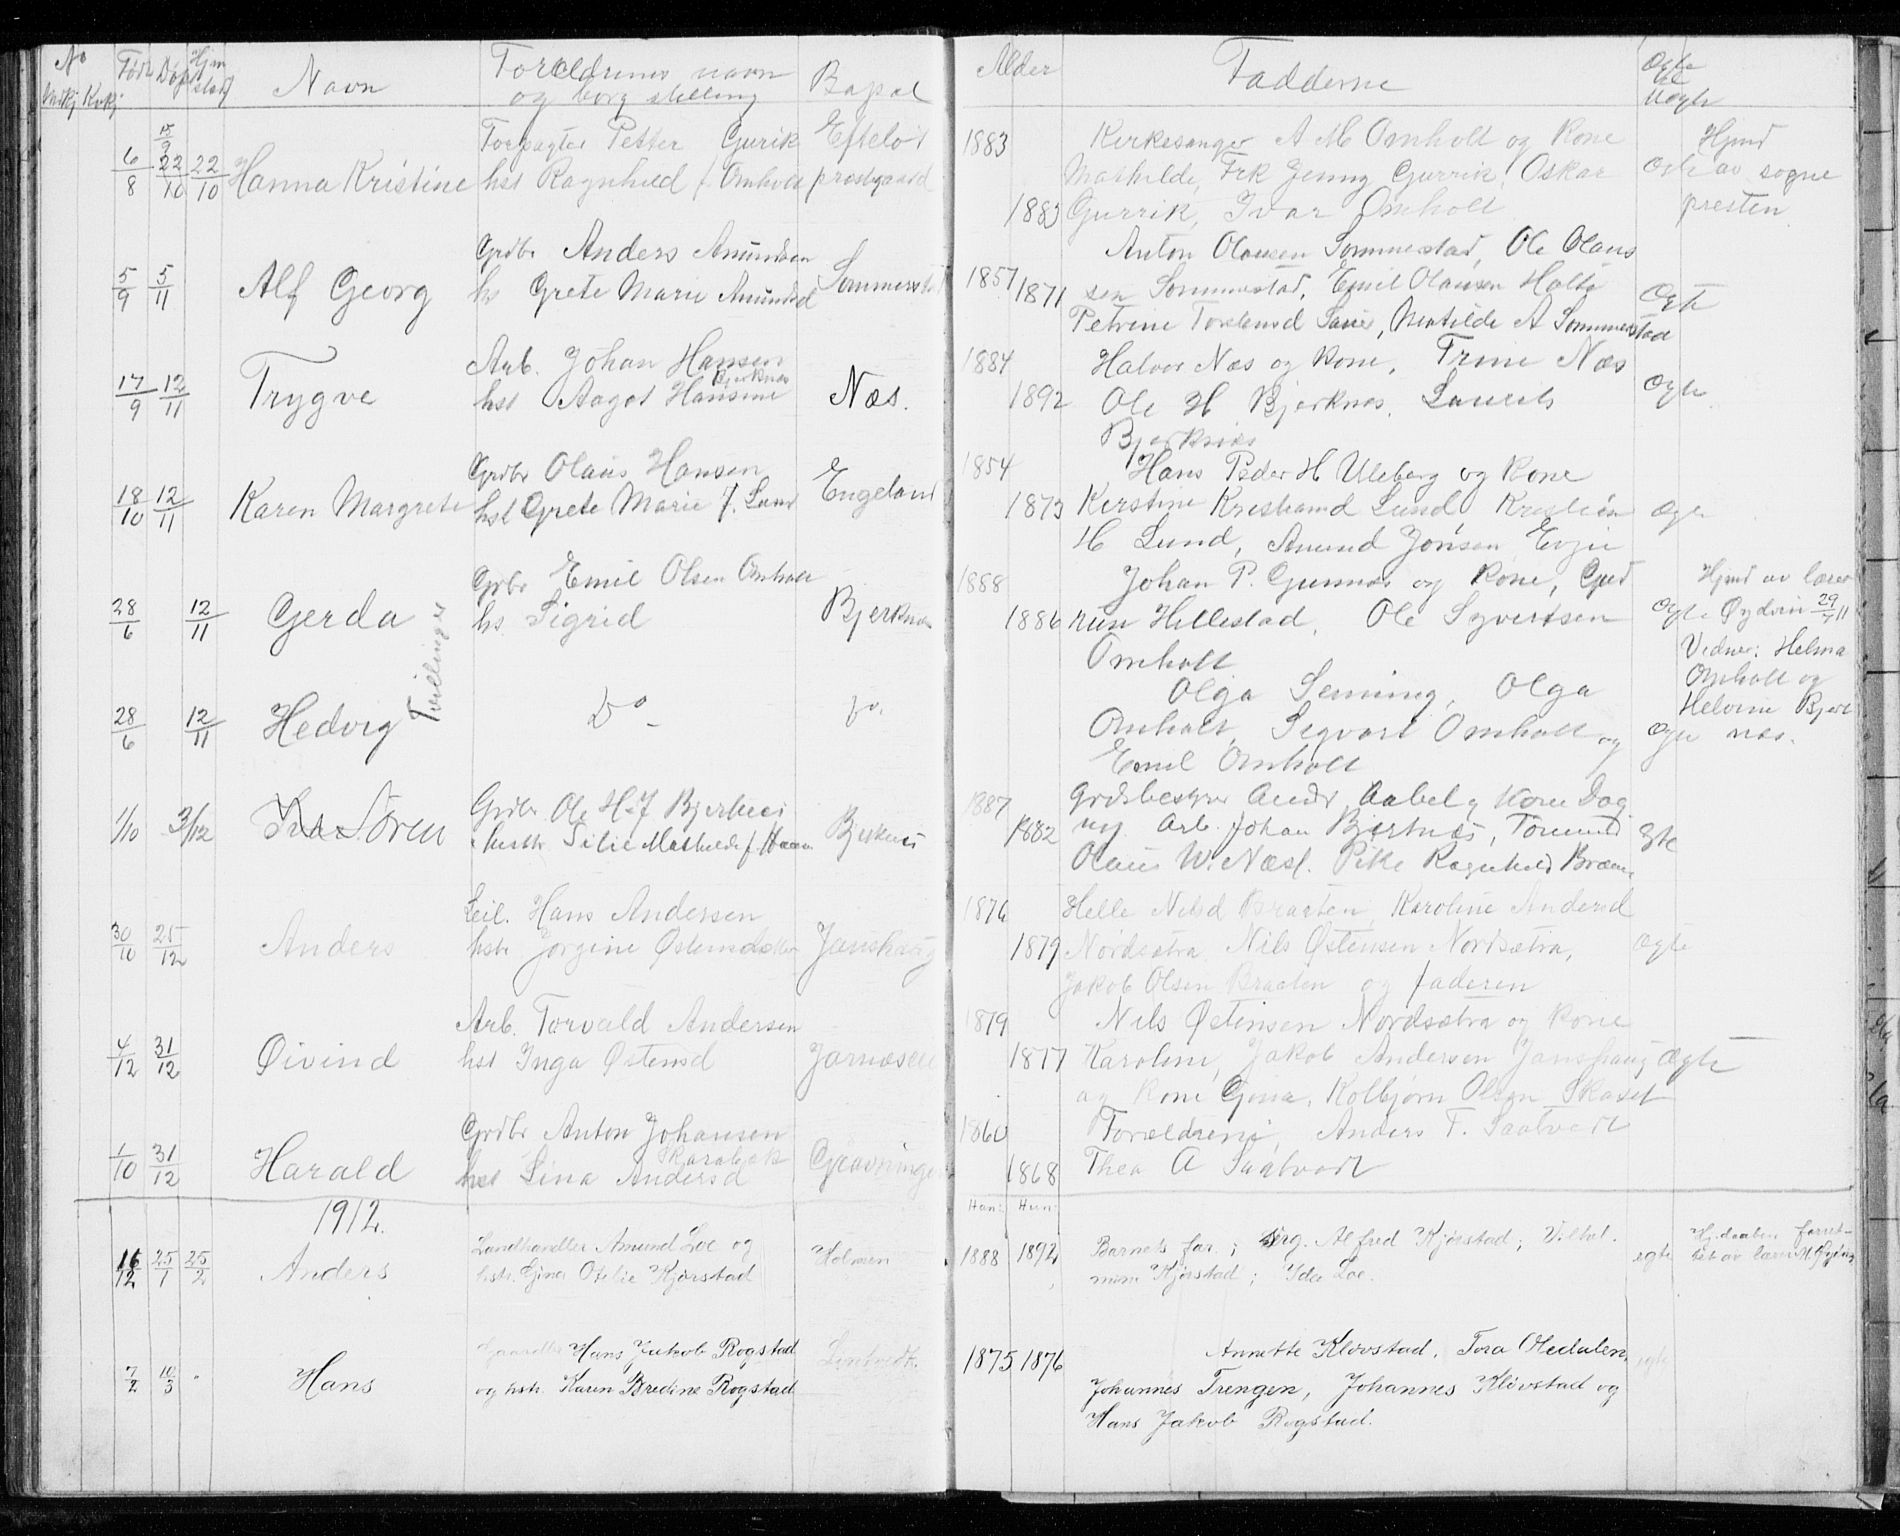 No
Mkj Kvkj Født Døpt Hjem døbt Navn Forældrenes navn og borg stilling Bopæl
Alder Fadderne Ægte el Uægte
6/8 15/9 22/10 22/10 Hanna Kristine
Forpagter Petter Gurik
hst Ragnhild f. Omholt
Efteløt prestgaard
1883 1883
Kirkesanger A M Omholt og Kone
Mathilde, Frk Jenny Gurrik, Oskar
Gurrik, Ivar Omholt
Ægte
Hjmd av sogne presten
5/9 5/11 Alf Georg
Grdbr Anders Amundsen
hs Grete Marie Amundsd
Sommerstad
1857 1871
Anton Olausen Sommestad, Ole Olaus
sen Sommestad, Emil Olausen Holte
Petrine Torstensd, Matilde A Sommerstad
Ægte
17/9 12/11 Trygve
Arb. Johan Hansen
Bjerknes
hst Aagot Hansine
Næs.
1884 1892
Halvor Næs og kone, Trine Næs
Ole H Bjerknes, Laurits
Bjerknes
Ægte
18/10 12/11 Karen Margrete
Grdbr Olaus Hansen
hst Grete Marie J. Lund
Engeland
1854 1873
Hans Peder H Uleberg og kone
Kirstine Lund Kristian
H Lund, Amund Jonsen Evju
Ægte
28/6 12/11 Gerda
Tvillinger
Grbr Emil Olsen Omholt
hs Sigrid
Bjerknes
1888 1886
Johan P. Gunnes og kone, Gud
run Hellestad, Ole Syvertsen
Omholt
Ægte
Hjmd av lærer
Øydvin 29/7 11
Vidner: Helma
Omholt og
Helvine Bjerk
nes.
28/6 12/11 Hedvig
Do
Do
Olga Semming, Olga
Omholt, Segvart Omholt og
Emil Omholt
Ægte
1/10 3/12 Sören
Grdbr Ole H. J Bjerknes
hustr. Silie Mathilde f. Haam
Bjerknes
1887 1882
Grdsbestyrer Andr Aabel og Kone Dag
ny. Arb. Johan Bjerknes,
Olaus W. Næss. Pike Ragnhild
Ægte
30/10 25/12 Anders
Leil. Hans Andersen
hstr Jorgine Østensdatter
Janshaug
1876 1879
Helle Nilsd Braaten, Karoline Andersd
Nordsetra, Nils Østensen Nordsætra,
Jakob Olsen Braaten og faderen
Ægte
4/12 31/12 Øivind
Arb. Torvald Andersen
hst Inga Østensd
1879 1877
Nils Østensen Nordsætra og kone
Karoline, Jakob Andersen Janshaug
og kone Gina, Kolbjørn Olsen Skaset
Ægte
1/10 31/12 Harald
Grdbr Anton Johansen
Skarabek
hst Lina Andersd
Gravninge
1860 1868
Forældrene, Anders F. Saatvedt
Thea A Saatvedt
1912.
Han: Hun:
16/12 25/1 25/2 Anders
Landhandler Amund Loe og
hstr. Gina Otelie Kjørstad
Holmen
1888 1892
Barnets far; Alfred Kjørstad; Vilhel-
mine Kjørstad; Ida Loe.
egte
Hj.daaben forret-
tet av lærer N. Øydvin
7/2 10/3 Hans
Hans Jakob Rogstad
og hstr. Karen Bredine Rogstad
Lintvedt.
1875 1876
Annette Klovstad. Tora Ohedalen,
Johannes Trengen, Johannes Klövstad og
Hans Jakob Rogstad.
egte